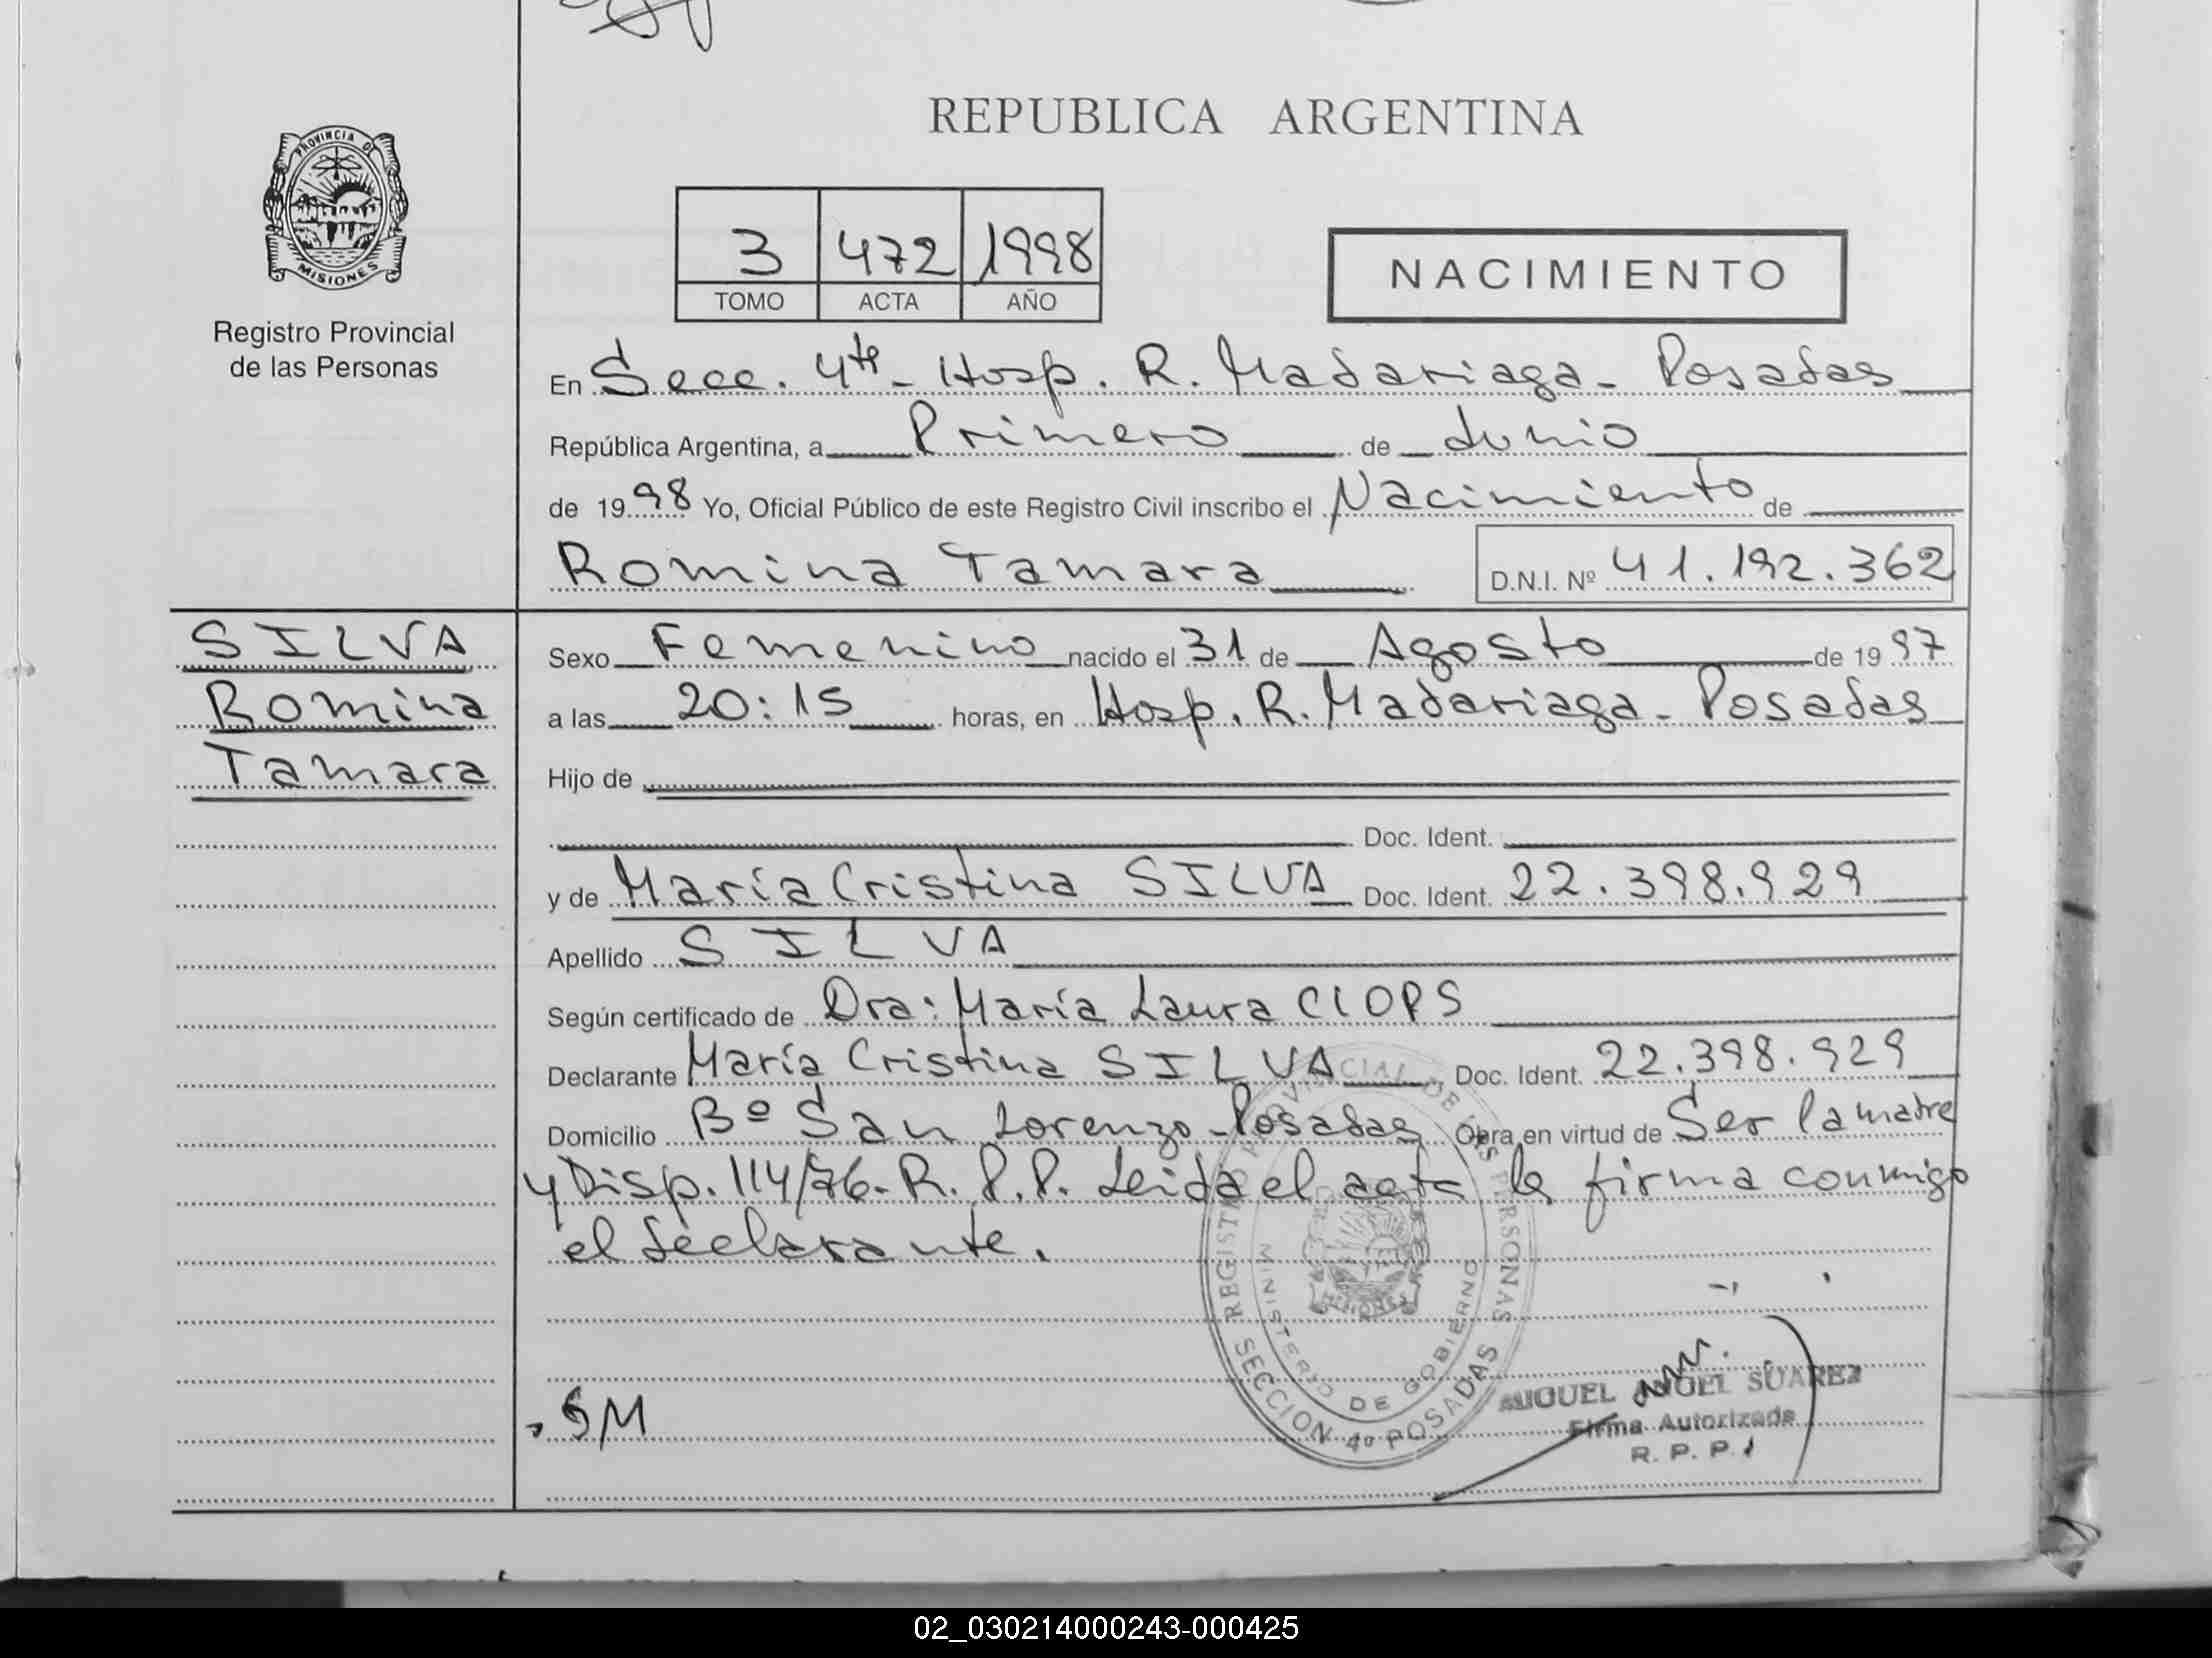 REPUBLICA ARGENTINA
PROVINCIA DE
MISIONES
Registro Provincial
de las Personas
3 472 1998
TOMO ACTA AÑO
NACIMIENTO
En Secc. 4ta - Hosp. R. Madariaga - Posadas
República Argentina, a Primero de Junio
de 1998 Yo, Oficial Público de este Registro Civil inscribo el Nacimiento de
Romina Tamara D.N.I. Nº 41.192.362
SILVA
Romina
Tamara
Sexo Femenino nacido el 31 de Agosto de 1997
a las 20:15 horas, en Hosp. R. Madariaga - Posadas
Hijo de
Doc. Ident.
y de María Cristina SILVA Doc. Ident. 22.398.929
Apellido SILVA
Según certificado de Dra: María Laura CLOPS
Declarante María Cristina SILVA Doc. Ident. 22.398.929
Domicilio Bº San Lorenzo - Posadas Obra en virtud de Ser la madre
y Disp. 114/76 - R. P. P. Leida el acta la firma conmigo
el declarante.
REGISTRO PROVINCIAL DE LAS PERSONAS
MINISTERIO DE GOBIERNO
SECCION 4º POSADAS
SM
MIGUEL ANGEL SUAREZ
Firma Autorizada
R. P. P.
02_030214000243-000425